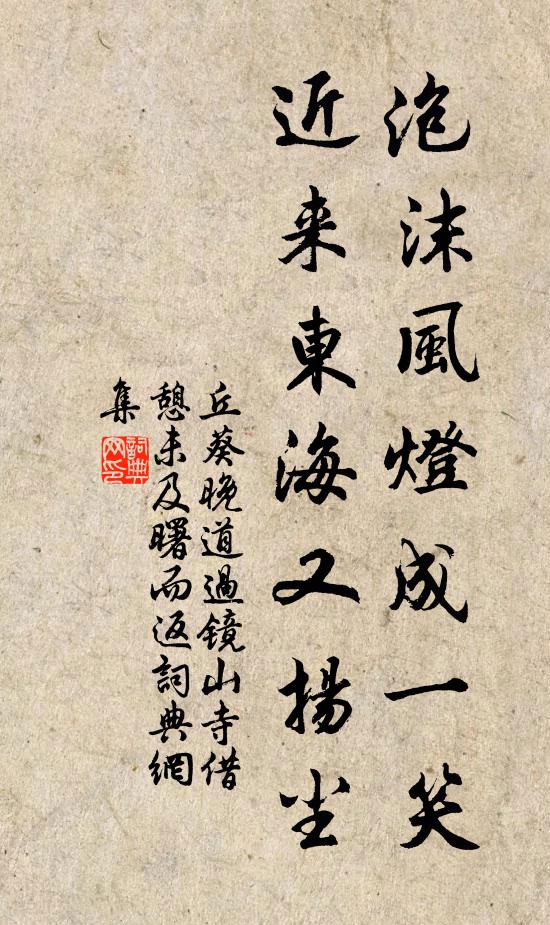 泡沫風燈成一笑
近来東海又揚尘
丘葵晚道過鏡山寺借
憩未及曙而返詞典網
集
詞典
网印